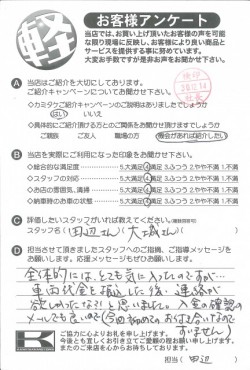 軽
お客様アンケート
当店では、お買い上げ頂いたお客様の声を可能
な限り現場に反映し、お客様により良い商品と
サービスを提供する事に努めています。
大変お手数ですが是非お声をお聞かせ下さい。
A 当店はご紹介を大切にしております。
ご紹介キャンペーンについてお聞かせ下さい。
◇カミタケご紹介キャンペーンのご説明はありましたでしょうか
はい いいえ
◇具体的にご紹介頂ける方とのご関係をお聞かせ頂けますでしょうか
ご親族 ご友人 職場の方 機会があれば紹介したい
B 当店を実際にご利用になった印象をお聞かせ下さい。
◇総合的な満足度 5.大満足 4.満足 3.ふつう 2.やや不満 1.不満
◇スタッフの対応 5.大満足 4.満足 3.ふつう 2.やや不満 1.不満
◇お店の雰囲気、清掃 5.大満足 4.満足 3.ふつう 2.やや不満 1.不満
◇納車時のお車の状態 5.大満足 4.満足 3.ふつう 2.やや不満 1.不満
C 評価したいスタッフがいれば教えてください。(複数回答可)
スタッフ名(田辺さん)(大城さん)
D 担当させて頂きましたスタッフへのご指摘、ご指導メッセージを
お願いします。応援メッセージもぜひお願いします。
全体的には、とても気に入ってるのですが…
車両代金を振込した後、連絡が
欲しかったな?と思いました。入金の確認の
メールでも良いので
すいません)
ご協力に心よりお礼を申し上げます。
今後とも宜しくお引き立てご愛顧の程お願い申し上げます。
またのご来店を心からお待ちしております。
担当(田辺)